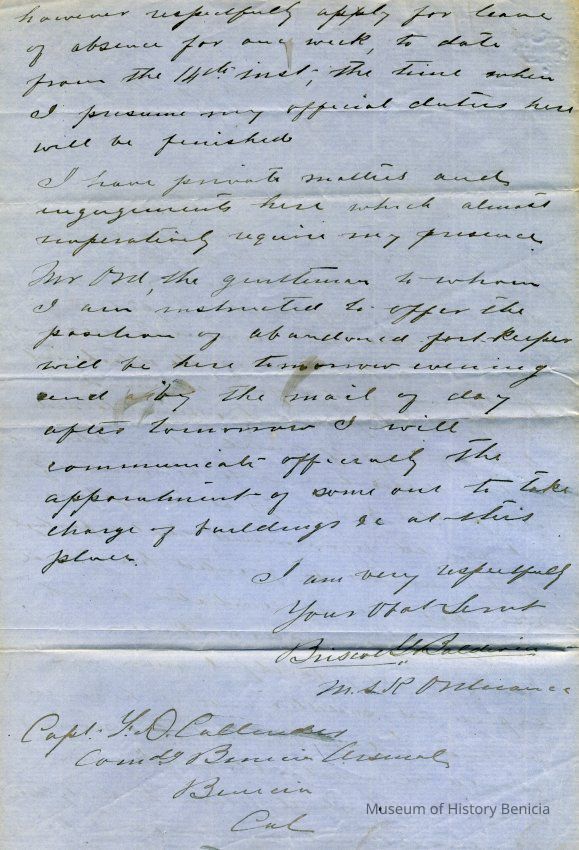 however respectfully apply for leave
of absence for one week, to date
from the 14th inst, the time when
I presume my official duties here
will be finished
I have private matters and
engagements here which almost
imperatively require my presence.
Mr Ord, the gentleman to whom
I am instructed to offer the
position of abandoned fort keeper
will be here tomorrow evening
and by the mail of day
after tomorrow I will
communicate officially the
appointment of some one to take
charge of buildings &c at this
place.
I am very respectfully
Your Obdt Servt
Briscoe G. Baldwin
M.S.K Ordnance
Capt. F. D. Callender
Comdg Benicia Arsenal
Benicia
Cal
Museum of History Benicia